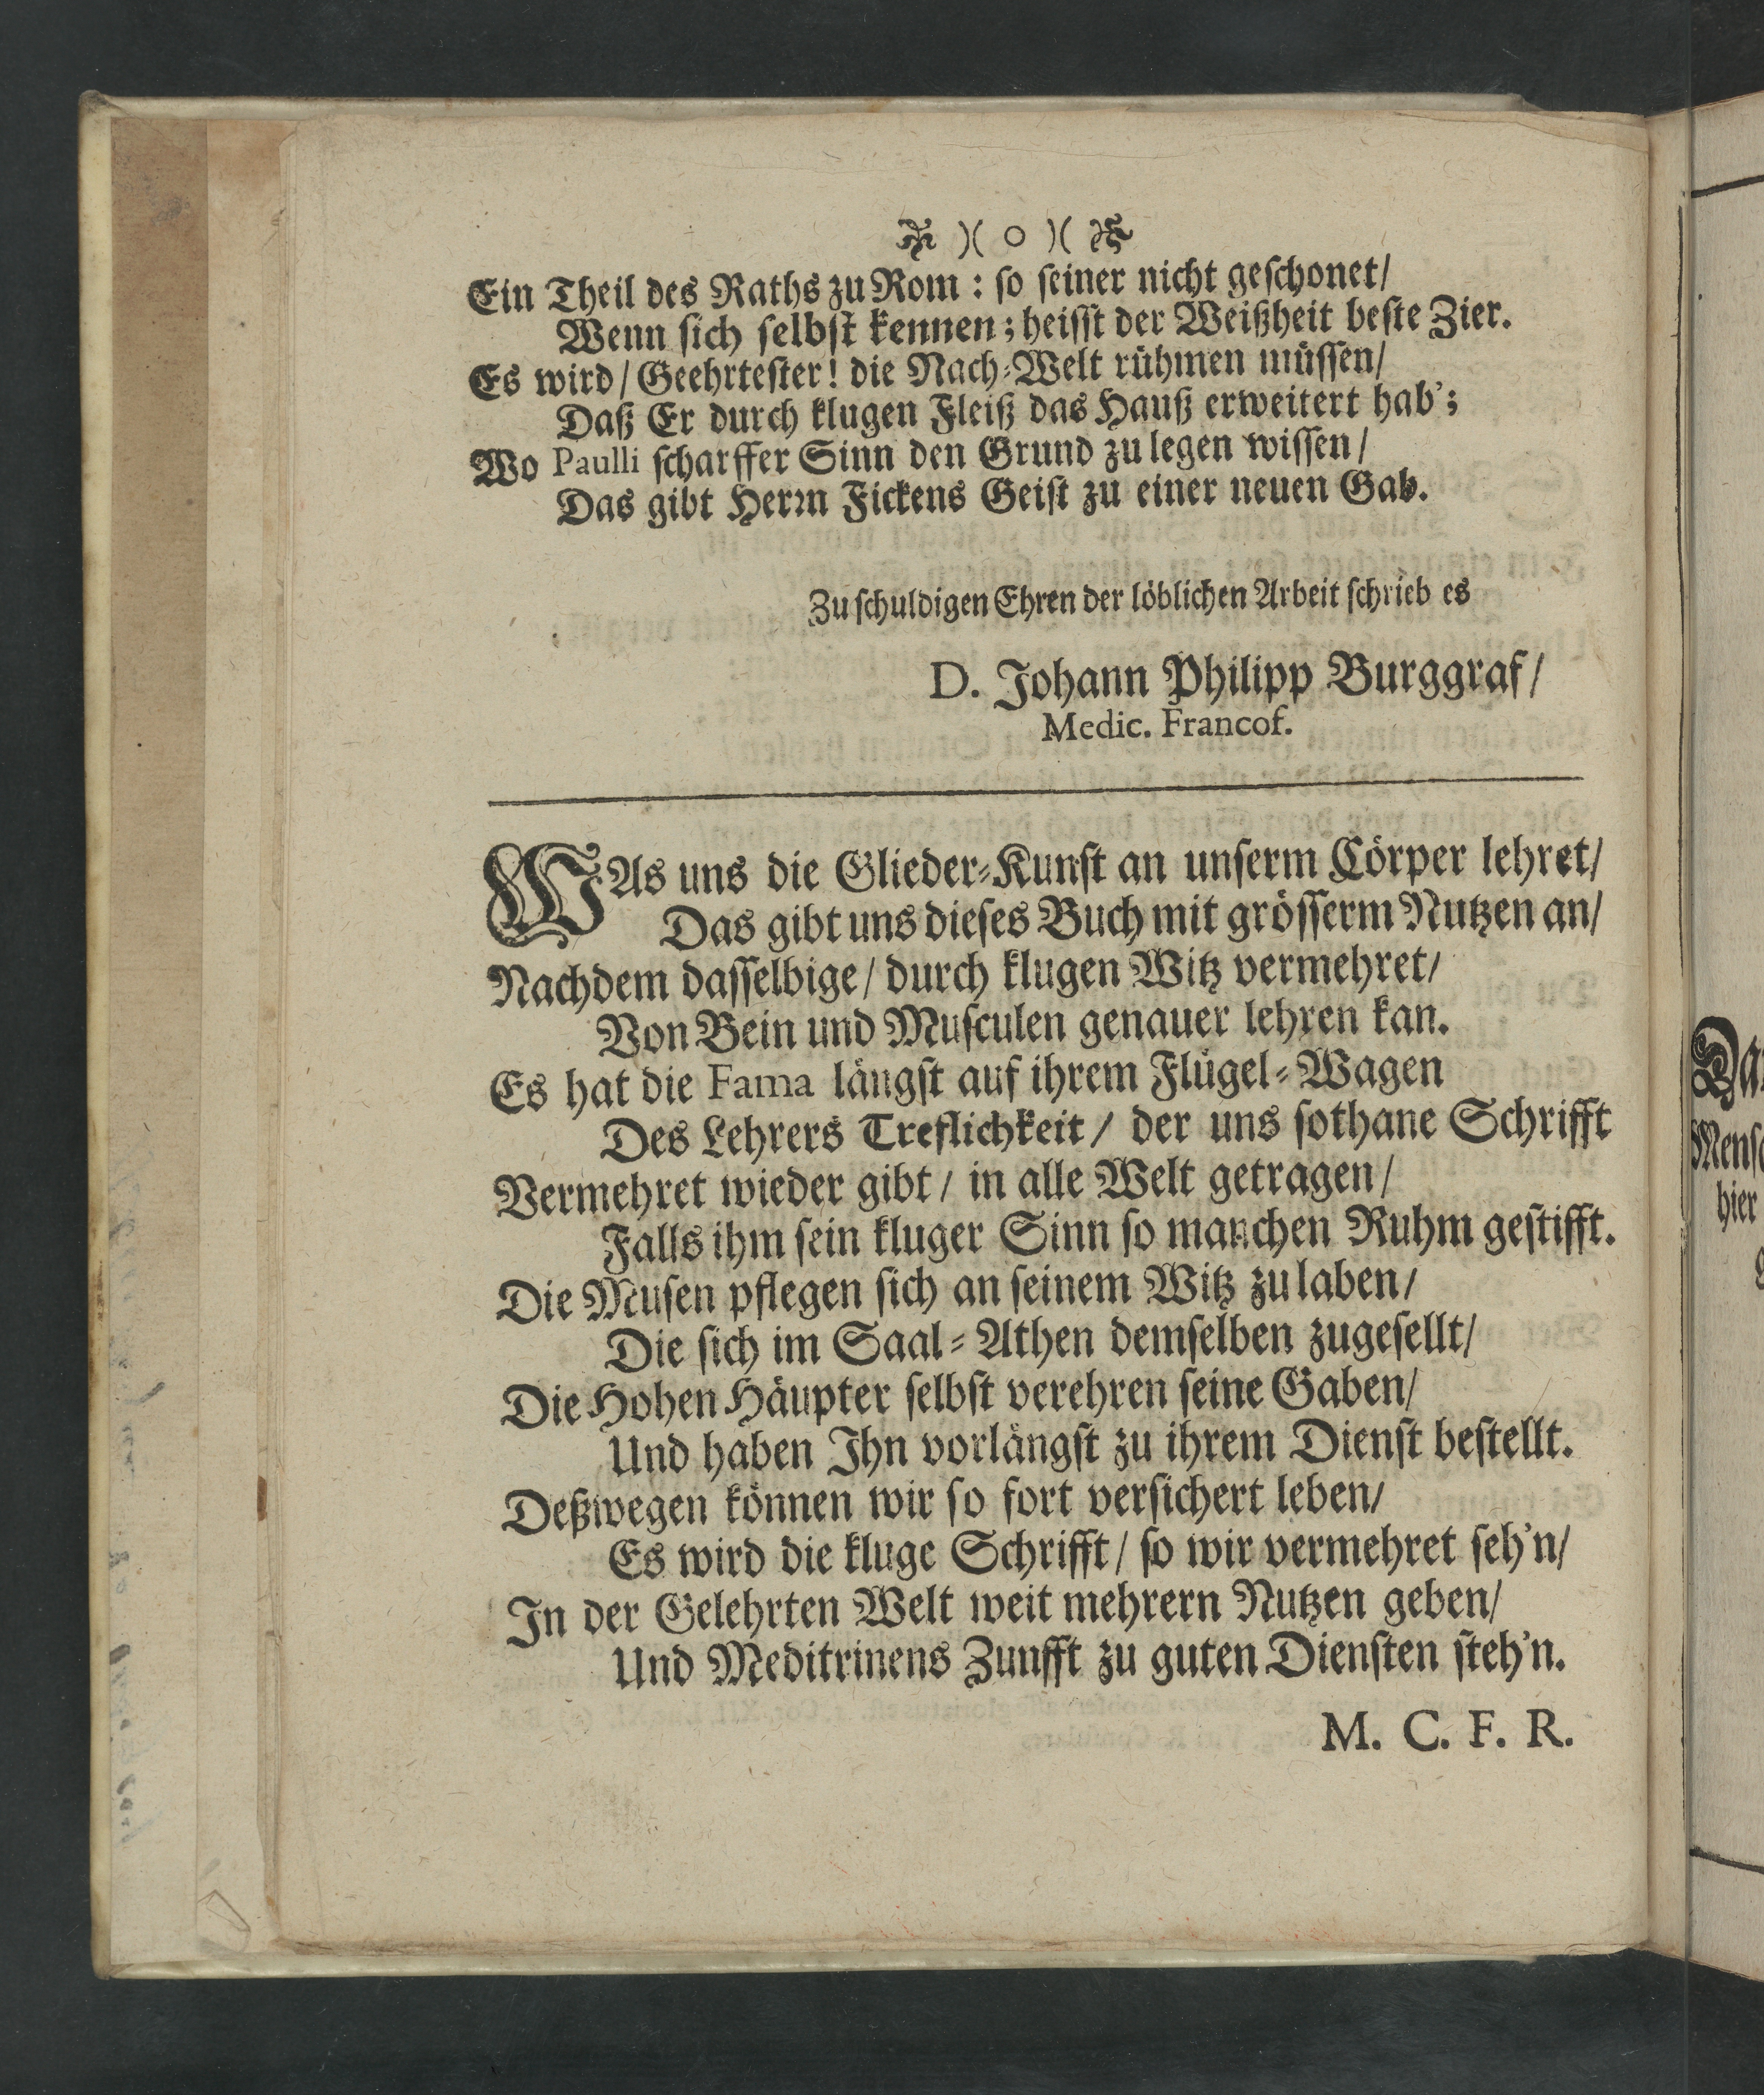 )( o )(
Ein Theil des Raths zu Rom : ſo ſeiner nicht geſchonet/
Wenn ſich ſelbſt kennen; heiſſt der Weißheit beſte Zier.
Es wird/ Geehrteſter! die Nach-Welt rühmen müſſen/
Daß Er durch klugen Fleiß das Hauß erweitert hab’;
Wo Paulli ſcharffer Sinn den Grund zu legen wiſſen/
Das gibt Herꝛn Fickens Geiſt zu einer neuen Gab.
Zu ſchuldigen Ehren der löblichen Arbeit ſchrieb es
D. Johann Philipp Burggraf/
Medic. Francof.
WAs uns die Glieder-Kunſt an unſerm Cörper lehret/
Das gibt uns dieſes Buch mit gröſſerm Nutzen an/
Nachdem daſſelbige/ durch klugen Witz vermehret/
Von Bein und Muſculen genauer lehren kan.
Es hat die Fama längſt auf ihrem Flügel-Wagen
Des Lehrers Treflichkeit/ der uns ſothane Schrifft
Vermehret wieder gibt/ in alle Welt getragen/
Falls ihm ſein kluger Sinn ſo manchen Ruhm geſtifft.
Die Muſen pflegen ſich an ſeinem Witz zu laben/
Die ſich im Saal-Athen demſelben zugeſellt/
Die Hohen Häupter ſelbſt verehren ſeine Gaben/
Und haben Ihn vorlängſt zu ihrem Dienſt beſtellt.
Deßwegen können wir ſo fort verſichert leben/
Es wird die kluge Schrifft/ ſo wir vermehret ſeh’n/
In der Gelehrten Welt weit mehrern Nutzen geben/
Und Meditrinens Zunfft zu guten Dienſten ſteh’n.
M. C. F. R.
hier